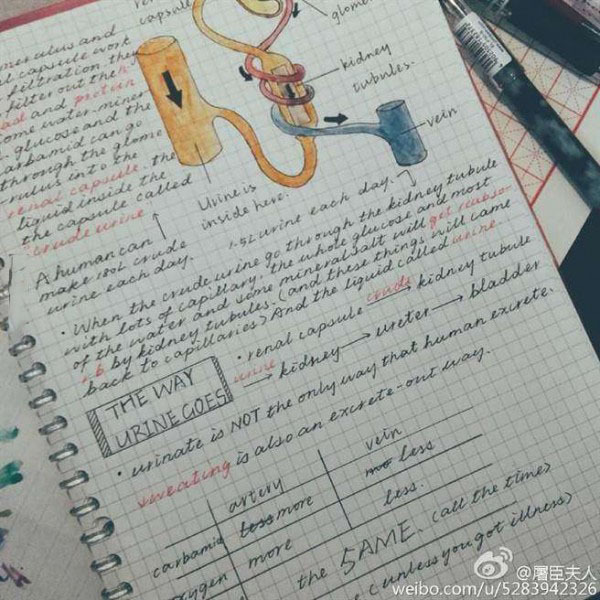 renal
capsule
glome
merulus and
al capsule work
filtration, they
filter out the
and protein
ome water, miner
glucose and the
carbamid can go
through the glome
rulus into the
renal capsule. the
liquid inside the
the capsule called
crude urine
kidney
tubules.
vein
Urine is
inside here.
A human can
make 180L crude
urine each day.
1.5L urine each day.
· When the crude urine go through the kidney tubule
with lots of capillary, the whole glucose and most
of the water and some mineral salt will get reabsor
b by kidney tubules. (and these things will came
back to capillaries) And the liquid called urine.
THE WAY
URINE GOES
· renal capsule crude urine → kidney tubule
→ kidney → ureter → bladder
· urinate is NOT the only way that human excrete.
sweating is also an excrete-out way.
artery vein
carbamid less more less
oxygen more less.
the SAME. (all the time)
(unless you got illness)
@屠臣夫人
weibo.com/u/5283942326